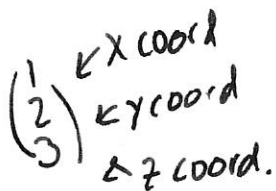 1 ↙ X coord
2 ↙ y coord
3 ↖ z coord.